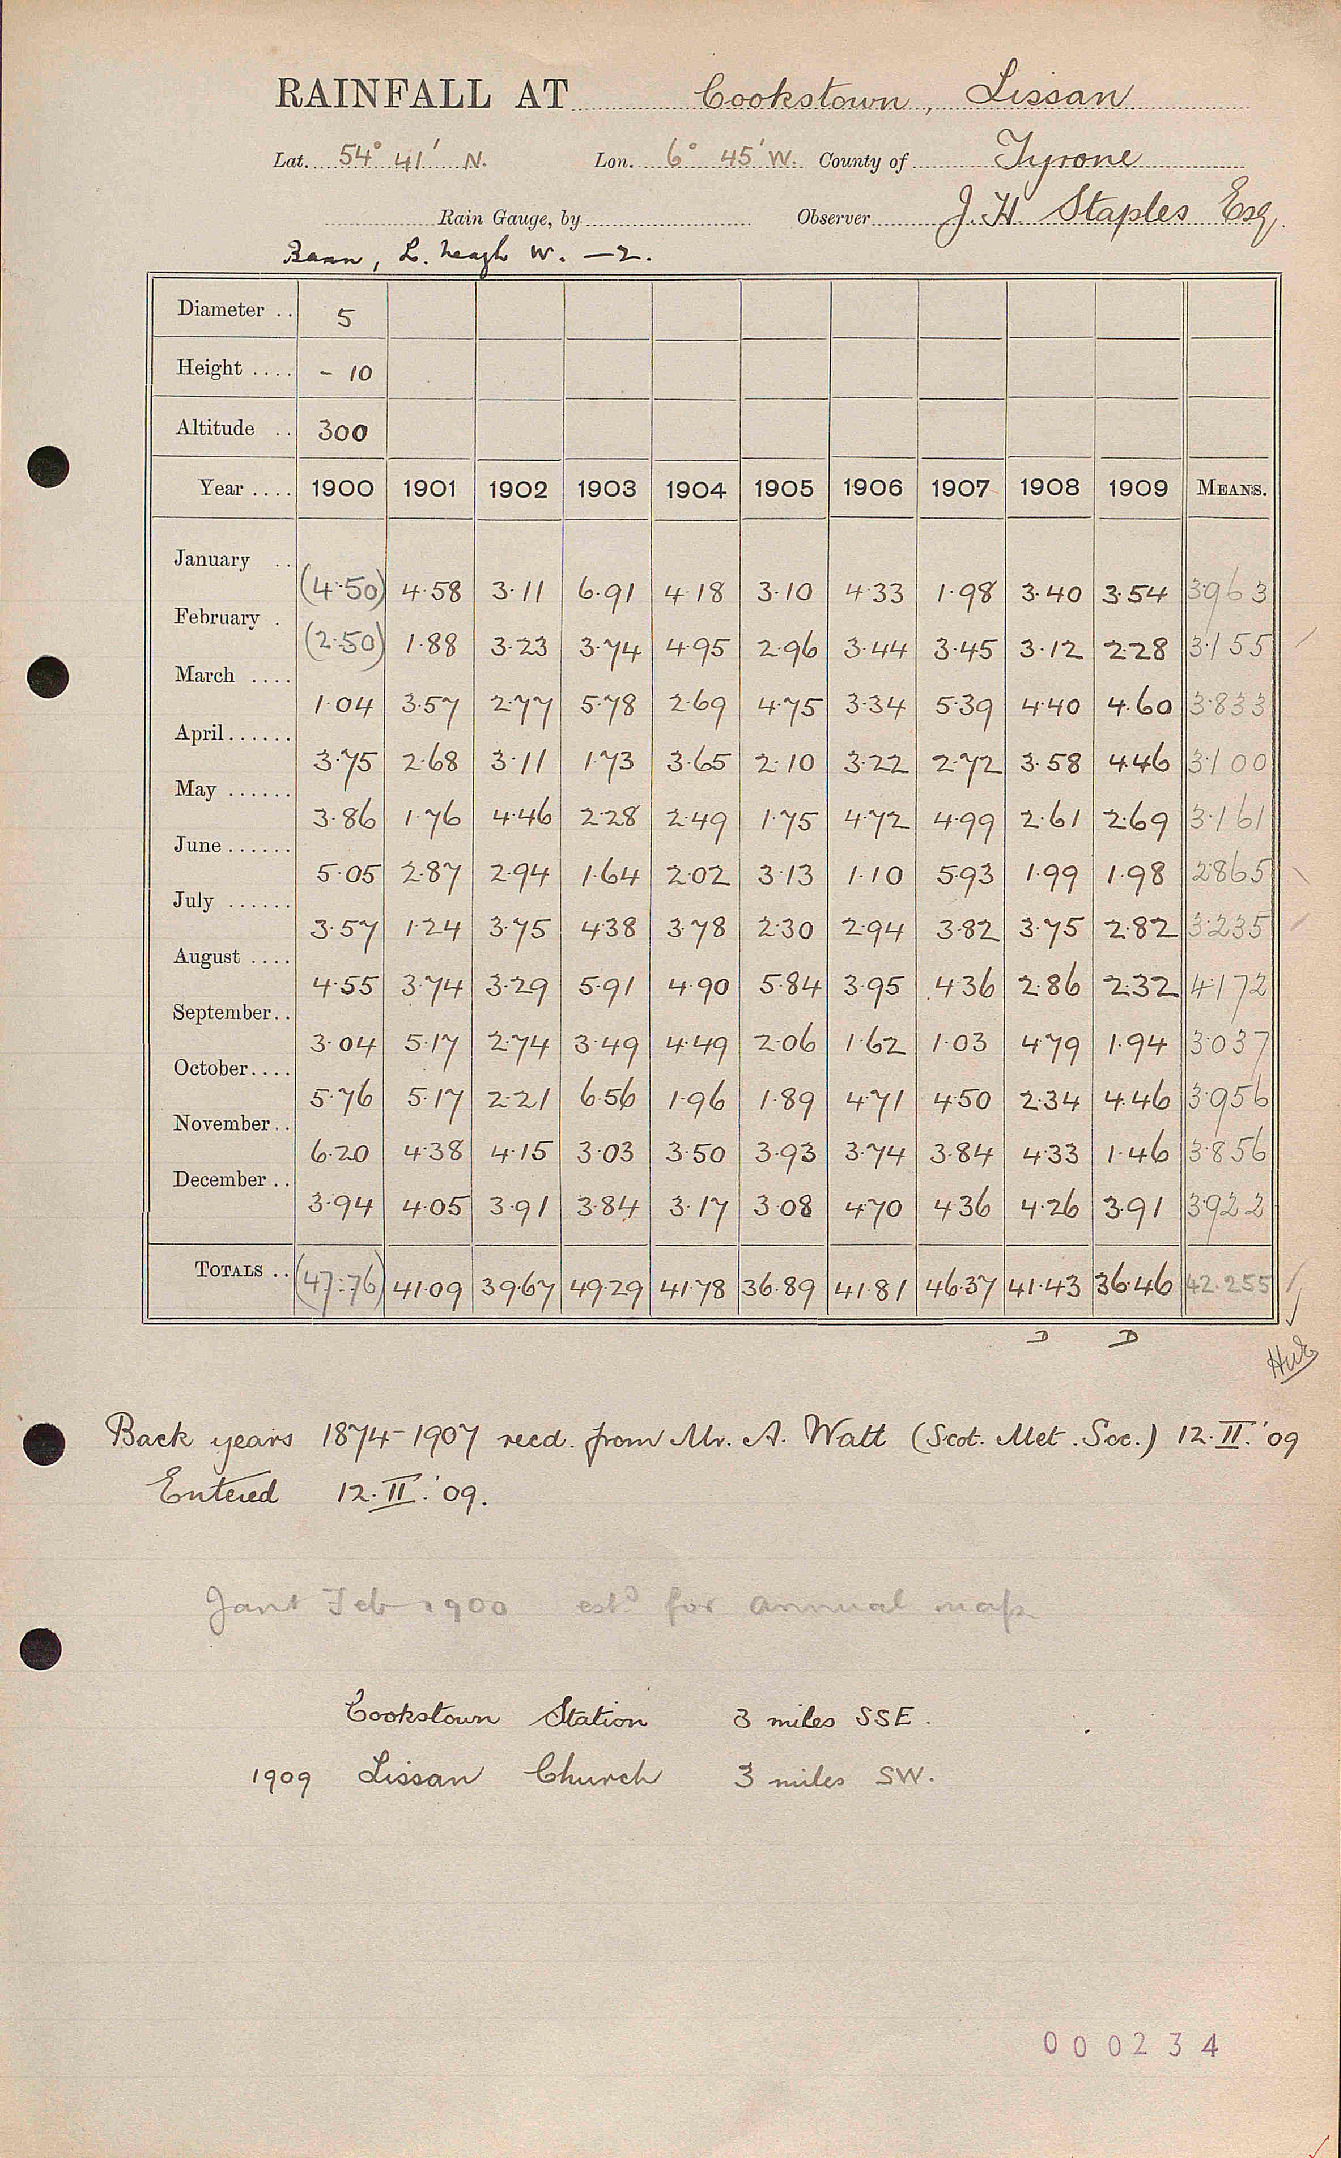 RAINFALL AT Cookstown, Lissan
Lat. 54° 41' N. Lon. 6° 45' W. County of Tyrone
Rain Gauge, by Observer J. H. Staples Esq.
Bann, L. Neagh W. —2.
Diameter .. 5
Height .... - 10
Altitude .. 300
Year .... 1900 1901 1902 1903 1904 1905 1906 1907 1908 1909 MEANS.
January .. (4.50) 4.58 3.11 6.91 4.18 3.10 4.33 1.98 3.40 3.54 3.963
February . (2.50) 1.88 3.23 3.74 4.95 2.96 3.44 3.45 3.12 2.28 3.155
March .... 1.04 3.57 2.77 5.78 2.69 4.75 3.34 5.39 4.40 4.60 3.833
April...... 3.75 2.68 3.11 1.73 3.65 2.10 3.22 2.72 3.58 4.46 3.100
May ...... 3.86 1.76 4.46 2.28 2.49 1.75 4.72 4.99 2.61 2.69 3.161
June ...... 5.05 2.87 2.94 1.64 2.02 3.13 1.10 5.93 1.99 1.98 2.865
July ...... 3.57 1.24 3.75 4.38 3.78 2.30 2.94 3.82 3.75 2.82 3.235
August .... 4.55 3.74 3.29 5.91 4.90 5.84 3.95 4.36 2.86 2.32 4.172
September.. 3.04 5.17 2.74 3.49 4.49 2.06 1.62 1.03 4.79 1.94 3.037
October.... 5.76 5.17 2.21 6.56 1.96 1.89 4.71 4.50 2.34 4.46 3.956
November.. 6.20 4.38 4.15 3.03 3.50 3.93 3.74 3.84 4.33 1.46 3.856
December .. 3.94 4.05 3.91 3.84 3.17 3.08 4.70 4.36 4.26 3.91 3.922
TOTALS .. (47.76) 41.09 39.67 49.29 41.78 36.89 41.81 46.37 41.43 36.46 42.255
D D
Back years 1874-1907 recd. from Mr. A. Watt (Scot. Met. Soc.) 12.II.'09
Entered 12.II.'09.
Jan & Feb 1900 estd for annual map
Cookstown Station 3 miles SSE.
1909 Lissan Church 3 miles SW.
000234